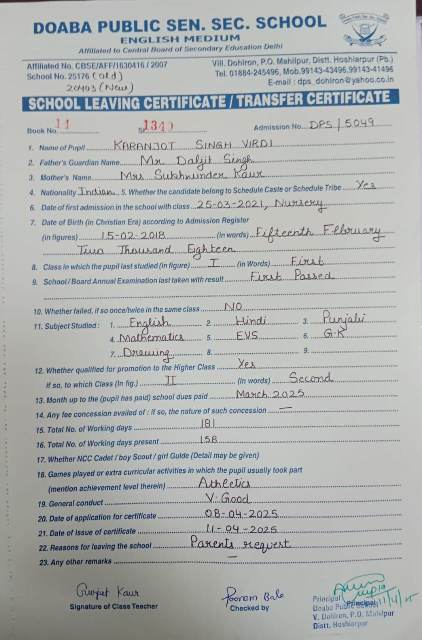 DOABA PUBLIC SEN. SEC. SCHOOL
ENGLISH MEDIUM
Affiliated to Central Board of Secondary Education Delhi
Affilated No. CBSE/AFF/1630416 / 2007
Vill. Dohiron, P.O. Mahilpur, Distt. Hoshiarpur (Pb.)
School No. 25176 (old)
Tel. 01884-245496, Mob.99143-43496,99143-41496
20403 (New)
E-mail : dps_dohiron@yahoo.co.in
SCHOOL LEAVING CERTIFICATE / TRANSFER CERTIFICATE
Book No. 14 1340 Admission No. DPS/5049
1. Name of Pupil KARANJOT SINGH VIRDI
2. Father's Guardian Name Mr. Daljit Singh
3. Mother's Name Mrs Sukhwinder Kaur
4. Nationality Indian 5. Whether the candidate belong to Schedule Caste or Schedule Tribe Yes
6. Date of first admission in the school with class 25-03-2021, Nursery
7. Date of Birth (in Christian Era) according to Admission Register
(in figures) 15-02-2018 (in words) Fifteenth February
Two Thousand Eighteen
8. Class in which the pupil last studied (in figure) I (in Words) First
9. School / Board Annual Examination last taken with result First Passed
10. Whether failed, if so once/twice in the same class NO
11. Subject Studied : 1. English 2. Hindi 3. Punjabi
4. Mathematics 5. EVS 6. G.K
7. Drawing 8. 9.
12. Whether qualified for promotion to the Higher Class Yes
If so, to which Class (In fig.) II (in words) Second
13. Month up to the (pupil has paid) school dues paid March 2025
14. Any fee concession availed of : if so, the nature of such concession —
15. Total No. of Working days 181
16. Total No. of Working days present 158
17. Whether NCC Cadet / boy Scout / girl Guide (Detail may be given)
18. Games played or extra curricular activities in which the pupil usually took part
(mention achievement level therein) Athletics
19. General conduct V. Good
20. Date of application for certificate 08-04-2025
21. Date of issue of certificate 11-04-2025
22. Reasons for leaving the school Parents request
23. Any other remarks —
Kaur
Poonam Bala
Signature of Class Teacher
Checked by
Principal
Principal
Doaba Public
V. Dohiron, P.O. Mahilpur
Distt. Hoshiarpur